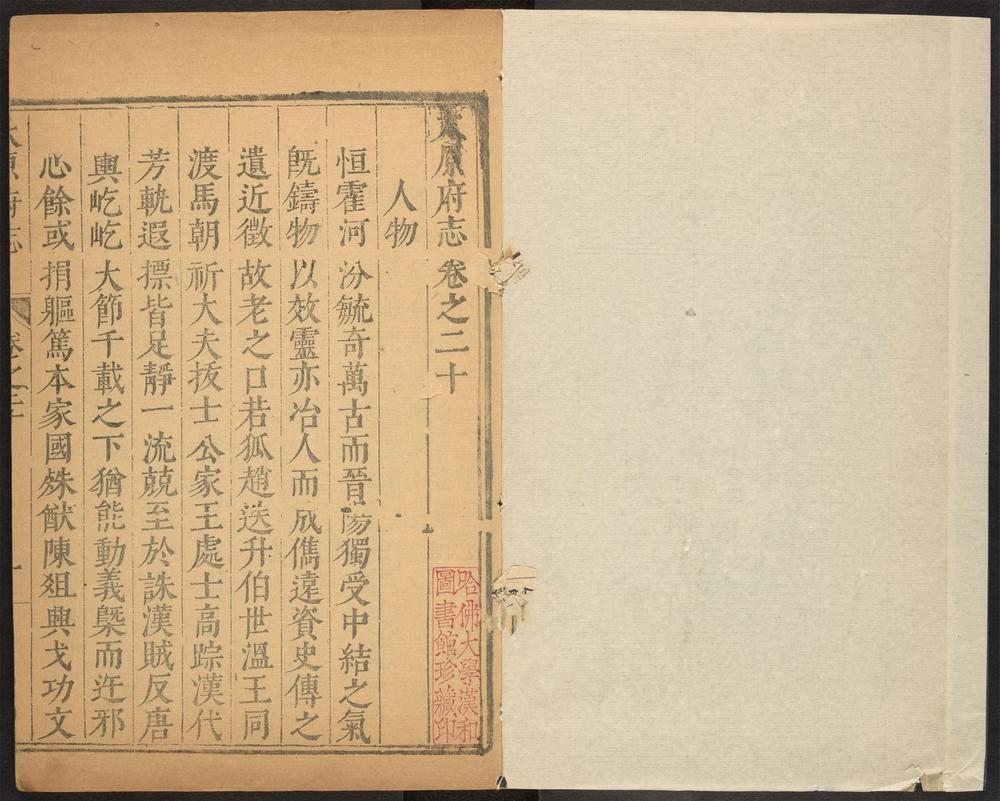 太原府志卷之二十
人物
恒霍河汾毓奇萬古而晉陽獨受中結之氣
旣鑄物以效靈亦冶人而成儁遠資史傳之
遺近徵故老之口若狐趙迭升伯世溫王同
渡馬朝祈大夫拔士公家王處士高踪漢代
芳軌遐摽皆足靜一流兢至於誅漢賊反唐
輿屹屹大節千載之下猶能動義槩而迕邪
心餘或捐軀篤本家國殊猷陳爼輿戈功文
太原府志 卷之二十 一
哈佛大學漢和
圖書館珍藏印